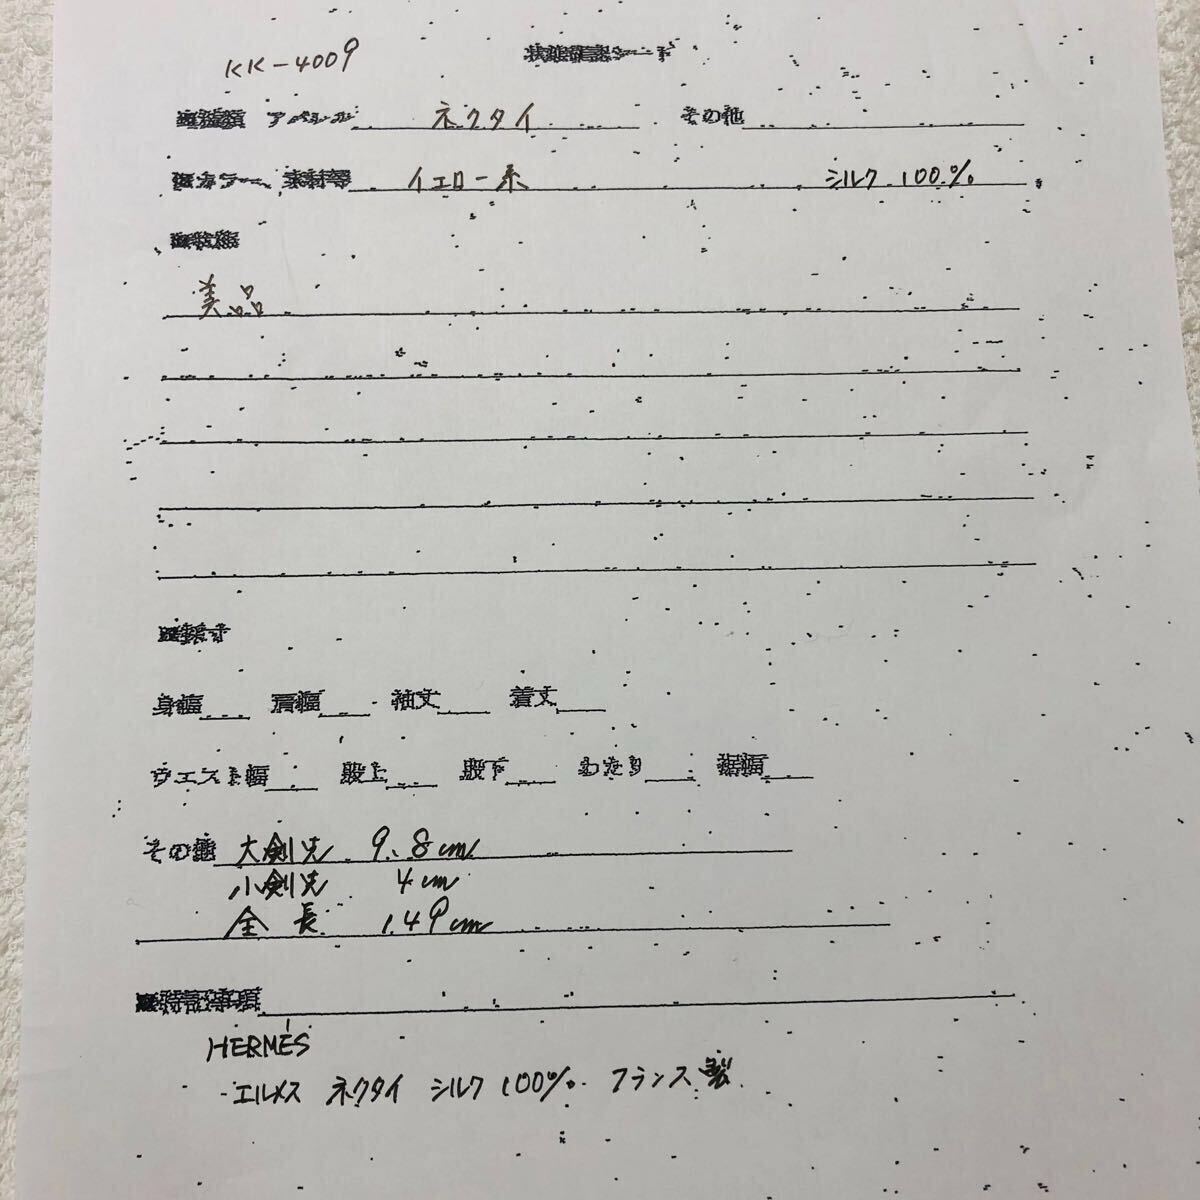 KK-4009
状態確認シート
■種類 アパレル ネクタイ その他
■カラー、素材等 イエロー系 シルク 100%
■状態
美品
■採寸
身幅 肩幅 袖丈 着丈
ウエスト幅 股上 股下 わたり 裾幅
その他 大剣先 9.8cm
小剣先 4cm
全長 149cm
■特記事項
HERMÉS
エルメス ネクタイ シルク 100% フランス製